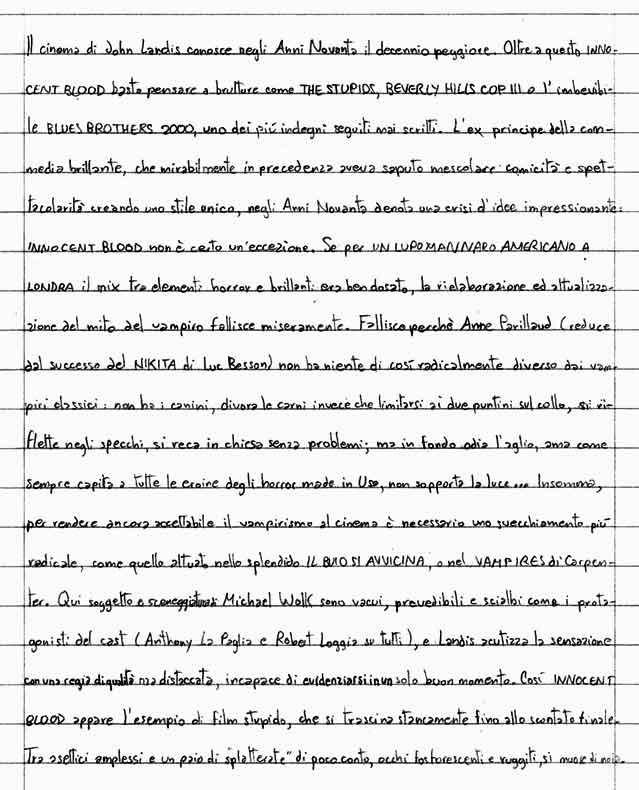 Il cinema di John Landis conosce negli Anni Novanta il decennio peggiore. Oltre a questo INNO-
CENT BLOOD basta pensare a brutture come THE STUPIDS, BEVERLY HILLS COP III o l'imbevibi-
le BLUES BROTHERS 2000, uno dei più indegni seguiti mai scritti. L'ex principe della com-
media brillante, che mirabilmente in precedenza aveva saputo mescolare comicità e spet-
tacolarità creando uno stile unico, negli Anni Novanta denota una crisi d'idee impressionante:
INNOCENT BLOOD non è certo un'eccezione. Se per UN LUPO MANNARO AMERICANO A
LONDRA il mix tra elementi horror e brillanti era ben dosato, la rielaborazione ed attualizza-
zione del mito del vampiro fallisce miseramente. Fallisce perchè Anne Parillaud (reduce
dal successo del NIKITA di Luc Besson) non ha niente di così radicalmente diverso dai vam-
piri classici: non ha i canini, divora le carni invece che limitarsi ai due puntini sul collo, si ri-
flette negli specchi, si reca in chiesa senza problemi; ma in fondo odia l'aglio, ama come
sempre capita a tutte le eroine degli horror made in Usa, non sopporta la luce... Insomma,
per rendere ancora accettabile il vampirismo al cinema è necessario uno svecchiamento più
radicale, come quello attuato nello splendido IL BUIO SI AVVICINA, o nel VAMPIRES di Carpen-
ter. Qui soggetto e sceneggiatura di Michael Wolk sono vacui, prevedibili e scialbi come i prota-
gonisti del cast (Anthony La Paglia e Robert Loggia su tutti), e Landis acutizza la sensazione
con una regia di qualità ma distaccata, incapace di evidenziarsi in un solo buon momento. Così INNOCENT
BLOOD appare l'esempio di film stupido, che si trascina stancamente fino allo scontato finale.
Tra asettici amplessi e un paio di "splatterate" di poco conto, occhi fosforescenti e ruggiti, si muore di noia.